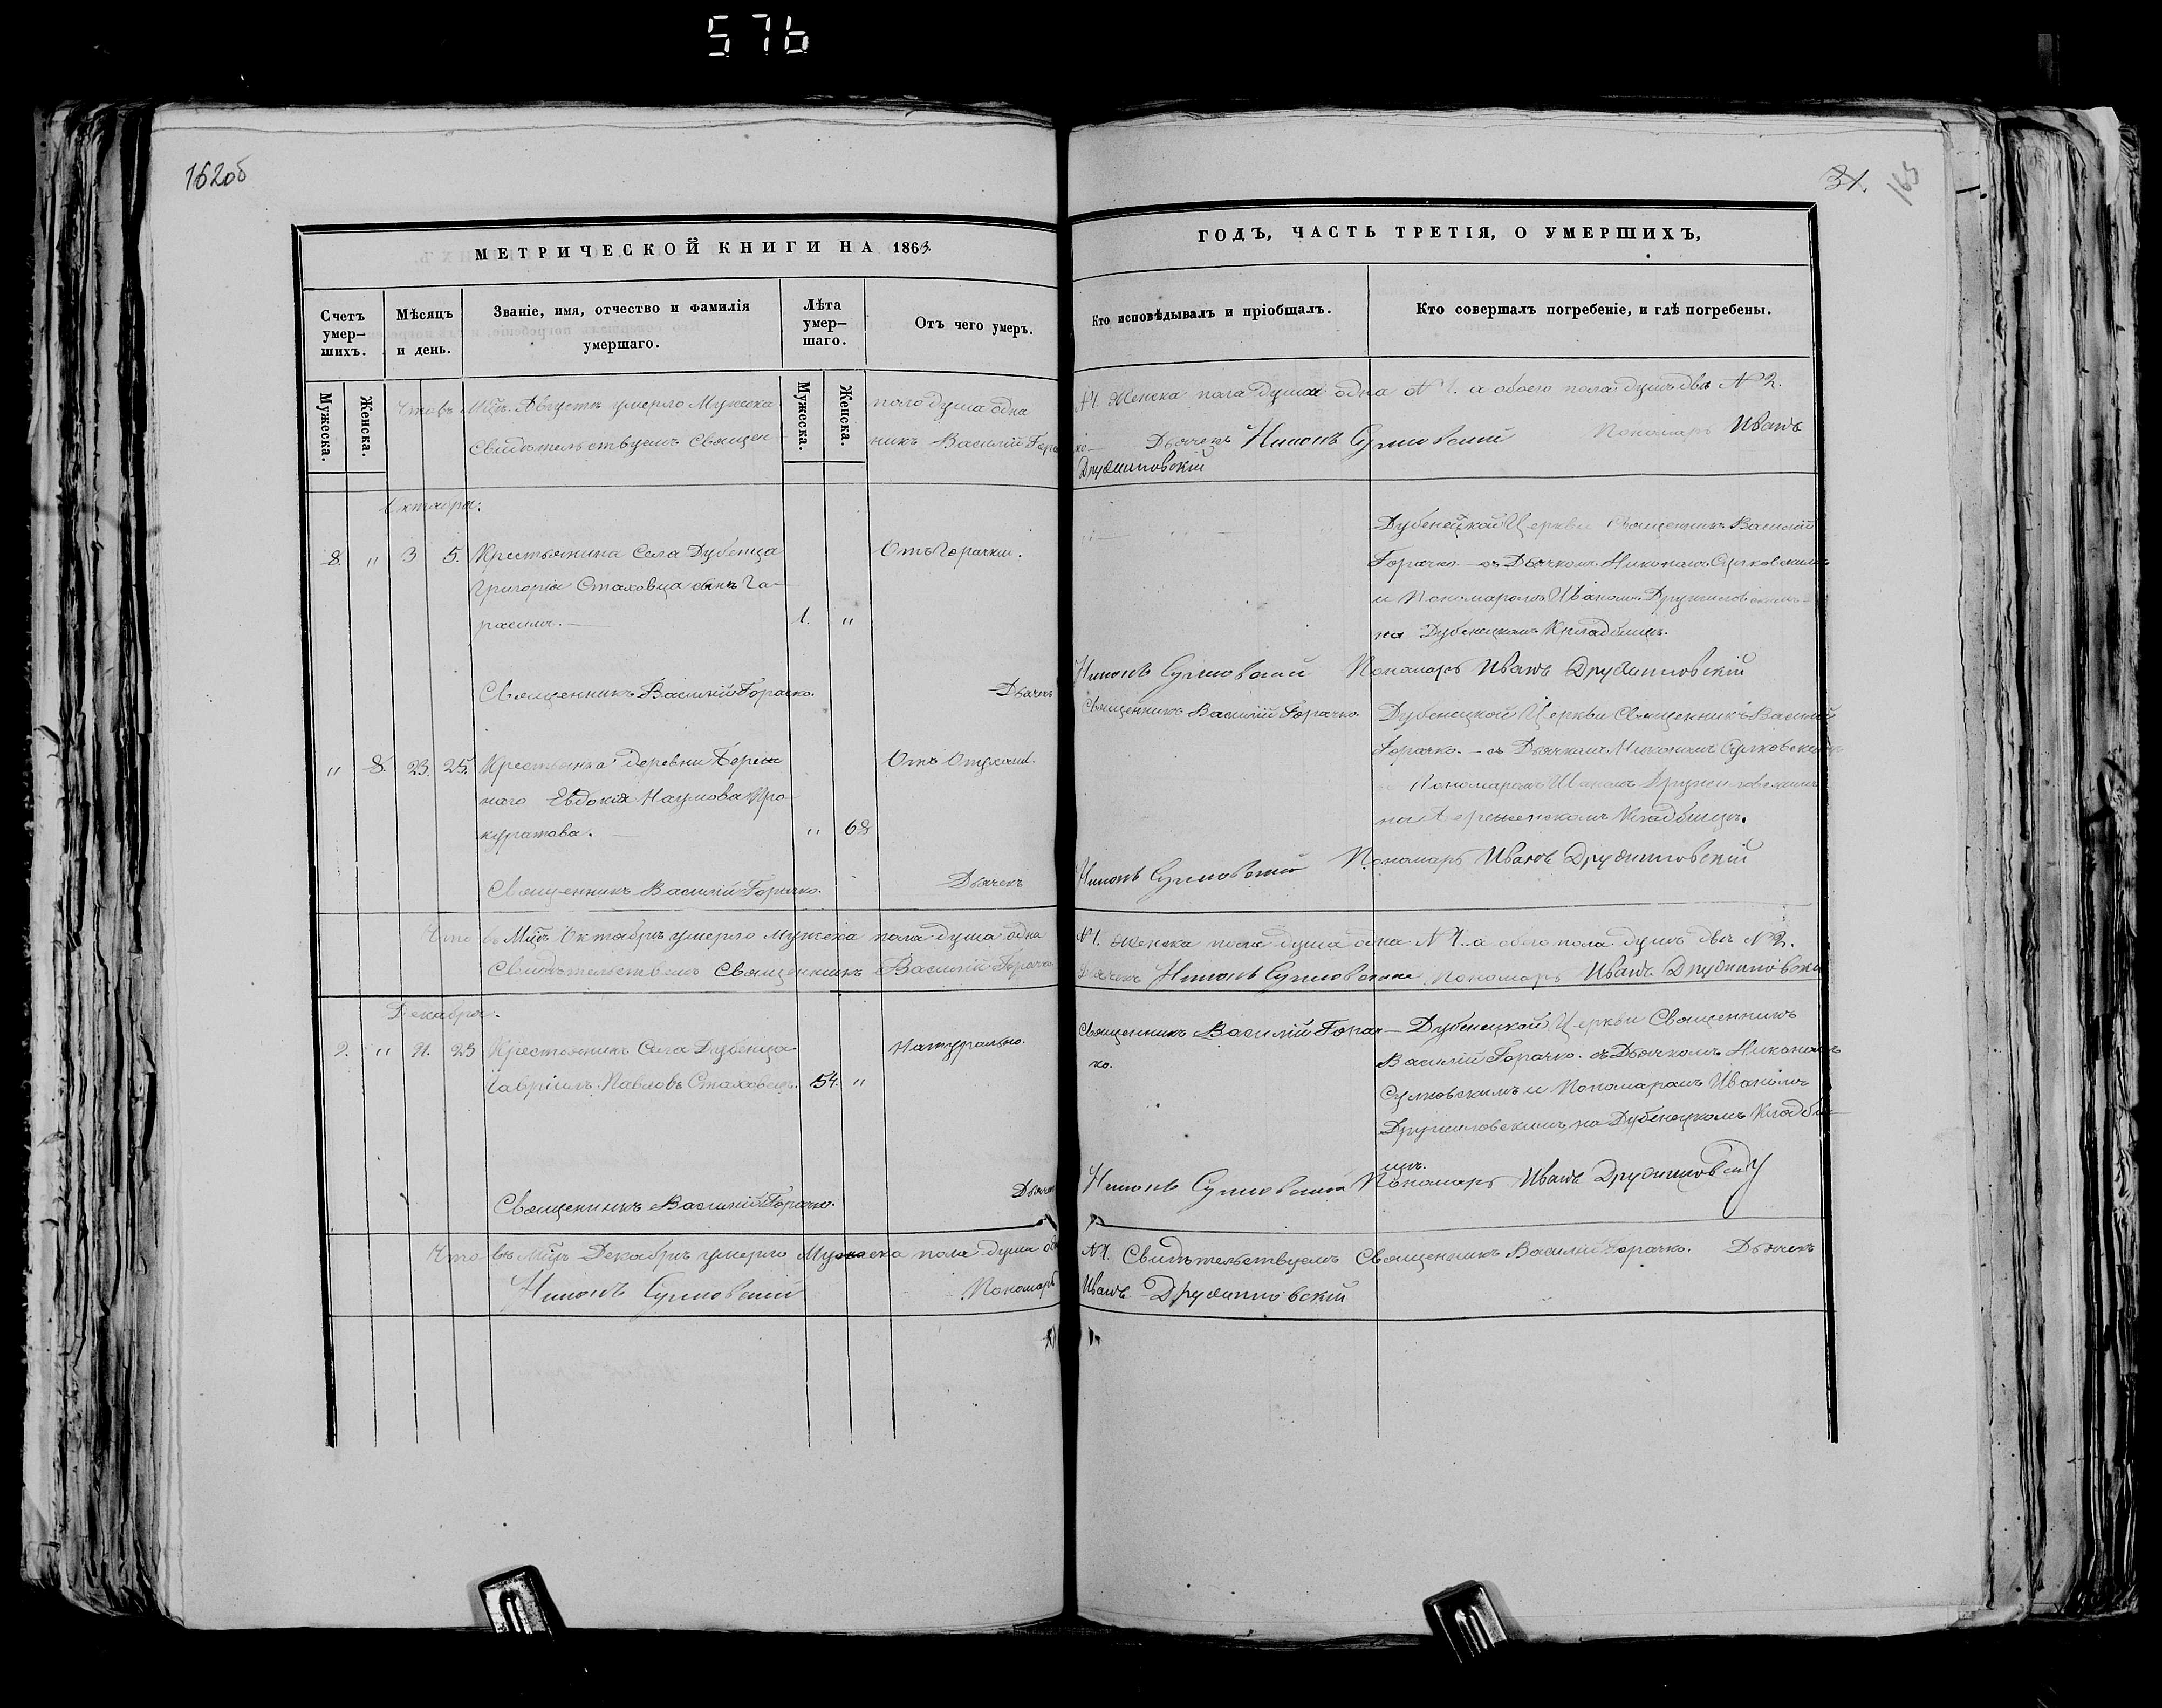 576
162об
31. 163
МЕТРИЧЕСКОЙ КНИГИ НА 1863
ГОДЪ, ЧАСТЬ ТРЕТІЯ, О УМЕРШИХЪ,
Счетъ умер— шихъ.
Мѣсяцъ и день.
Званіе, имя, отчество и фамилія умершаго.
Лѣта умер— шаго.
Отъ чего умеръ.
Кто исповѣдывалъ и пріобщалъ.
Кто совершалъ погребеніе, и гдѣ погребены.
Мужеска. Женска.
Мужеска. Женска.
Что въ Мцѣ Августѣ умерло Мужеска пола душа одна №1. Женска пола душа одна №1. а обоего пола душъ двѣ №2.
Свидѣтельствуемъ Священникъ Василій Горачко— Дьячекъ Никонъ Сулковский Пономарь Иванъ
Дружиловскій
Октября.
8. " 3 5. Крестьянина Села Дубенца
Григорія Стаховца сынъ Га—
расим. —
1. "
Отъ Горячки.
Дубенецкой Церкви Священникъ Василий
Горачко. — съ Дьячкомъ Никономъ Сулковскимъ
и Пономаремъ Иваномъ Дружиловскимъ—
на Дубенецкомъ Кладбищѣ.
Священникъ Василий Горачко. Дьячекъ Никонъ Сулковский Пономарь Иванъ Дружиловскій
" 8. 23. 25. Крестьянка деревни
Евдокія Наумова Про—
куратова. —
" 68
Отъ Опухоли.
Священникъ Василій Горачко.
Дубенецкой Церкви Священникъ Василий
Горачко. — съ Дьячкомъ Никономъ Сулковскимъ
Пономаремъ Иваномъ Дружиловскимъ
на Кладбищѣ.
Священникъ Василій Горачко. Дьячекъ Никонъ Сулковский Пономарь Иванъ Дружиловскій
Что въ Мцѣ Октябрѣ умерло Мужеска пола душа одна №1. Женска пола душа одна №1. а обоего пола душъ двѣ №2.
Свидѣтельствуемъ Священникъ Василій Горачко Дьячекъ Никонъ Сулковский Пономарь Иванъ Дружиловскій
Декабря.
9. " 21. 23 Крестьянинъ Села Дубенца
Гавріилъ Павловъ Стаховецъ. 54. "
Натурально.
Священникъ Василій Горач—
ко.
Дубенецкой Церкви Священникъ
Василій Горачко. съ Дьячкомъ Никономъ
Сулковскимъ и Пономаремъ Иваномъ
Дружиловскимъ, на Дубенецкомъ Кладби—
щѣ.
Священникъ Василій Горачко. Дьячекъ Никонъ Сулковский Пономарь Иванъ Дружиловскій
Что въ Мцѣ Декабрѣ умерло Мужеска пола душа одна №1. Свидѣтельствуемъ Священникъ Василий Горачко. Дьячекъ
Никонъ Сулковский Пономарь Иванъ Дружиловскій